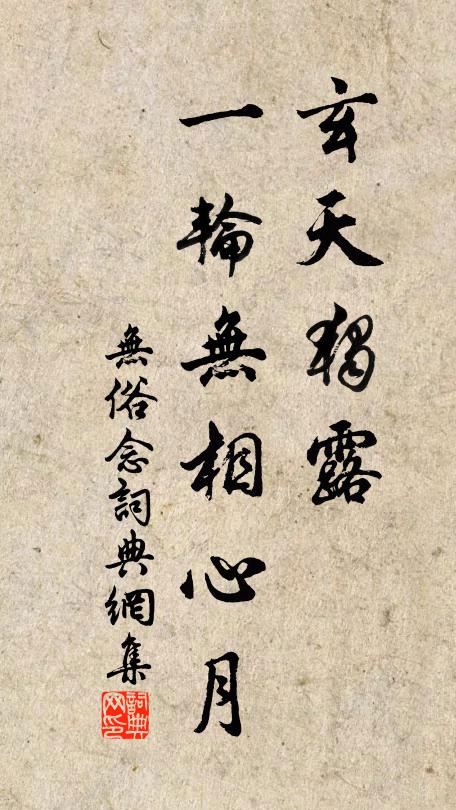 玄天獨露
一輪無相心月
無俗念詞典網集
詞典网印